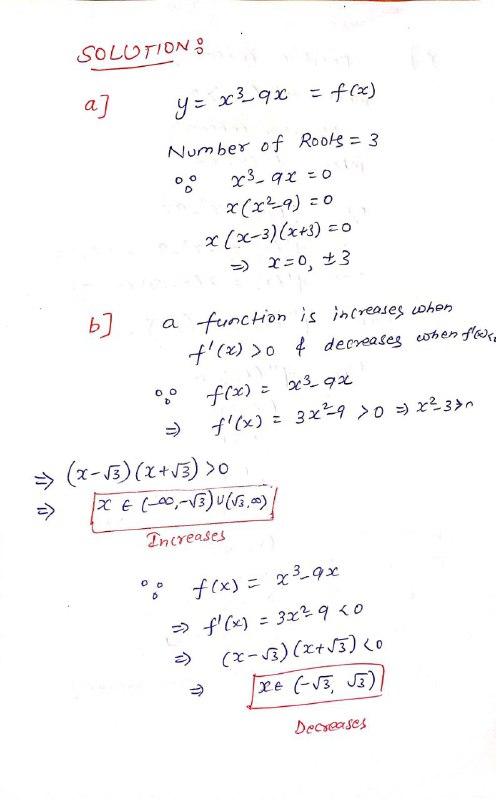 SOLUTION:
a] y = x³-9x = f(x)
Number of Roots = 3
∵ x³-9x = 0
x(x²-9) = 0
x(x-3)(x+3) = 0
⇒ x=0, ±3
b] a function is increases when
f'(x) >0 & decreases when f'(x)<
∵ f(x) = x³-9x
⇒ f'(x) = 3x²-9 >0 ⇒ x²-3>
⇒ (x-√3)(x+√3) >0
⇒ x ∈ (-∞,-√3)∪(√3,∞)
Increases
∵ f(x) = x³-9x
⇒ f'(x) = 3x²-9 <0
⇒ (x-√3)(x+√3) <0
⇒ x ∈ (-√3, √3)
Decreases